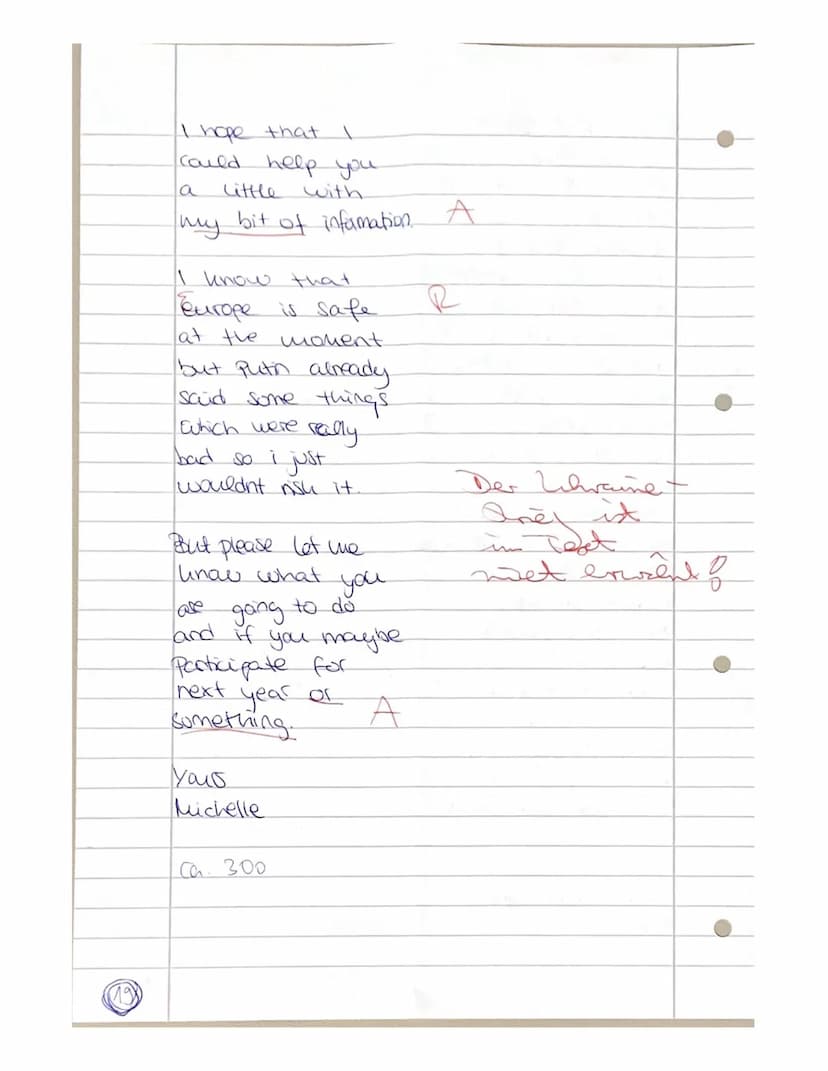 I hope that I
could help you
a little with
my bit of infamation. A
I know that
Europe is safe R
at the moment
but Putin already
said some things
which were really
bad so i just
wouldnt risk it.
Der Ukraine-
ist
im Text
But please let me
know what you
are going to do
and if you maybe
participate for
next year or
something. A
Yours
Michelle
Ca. 300
19